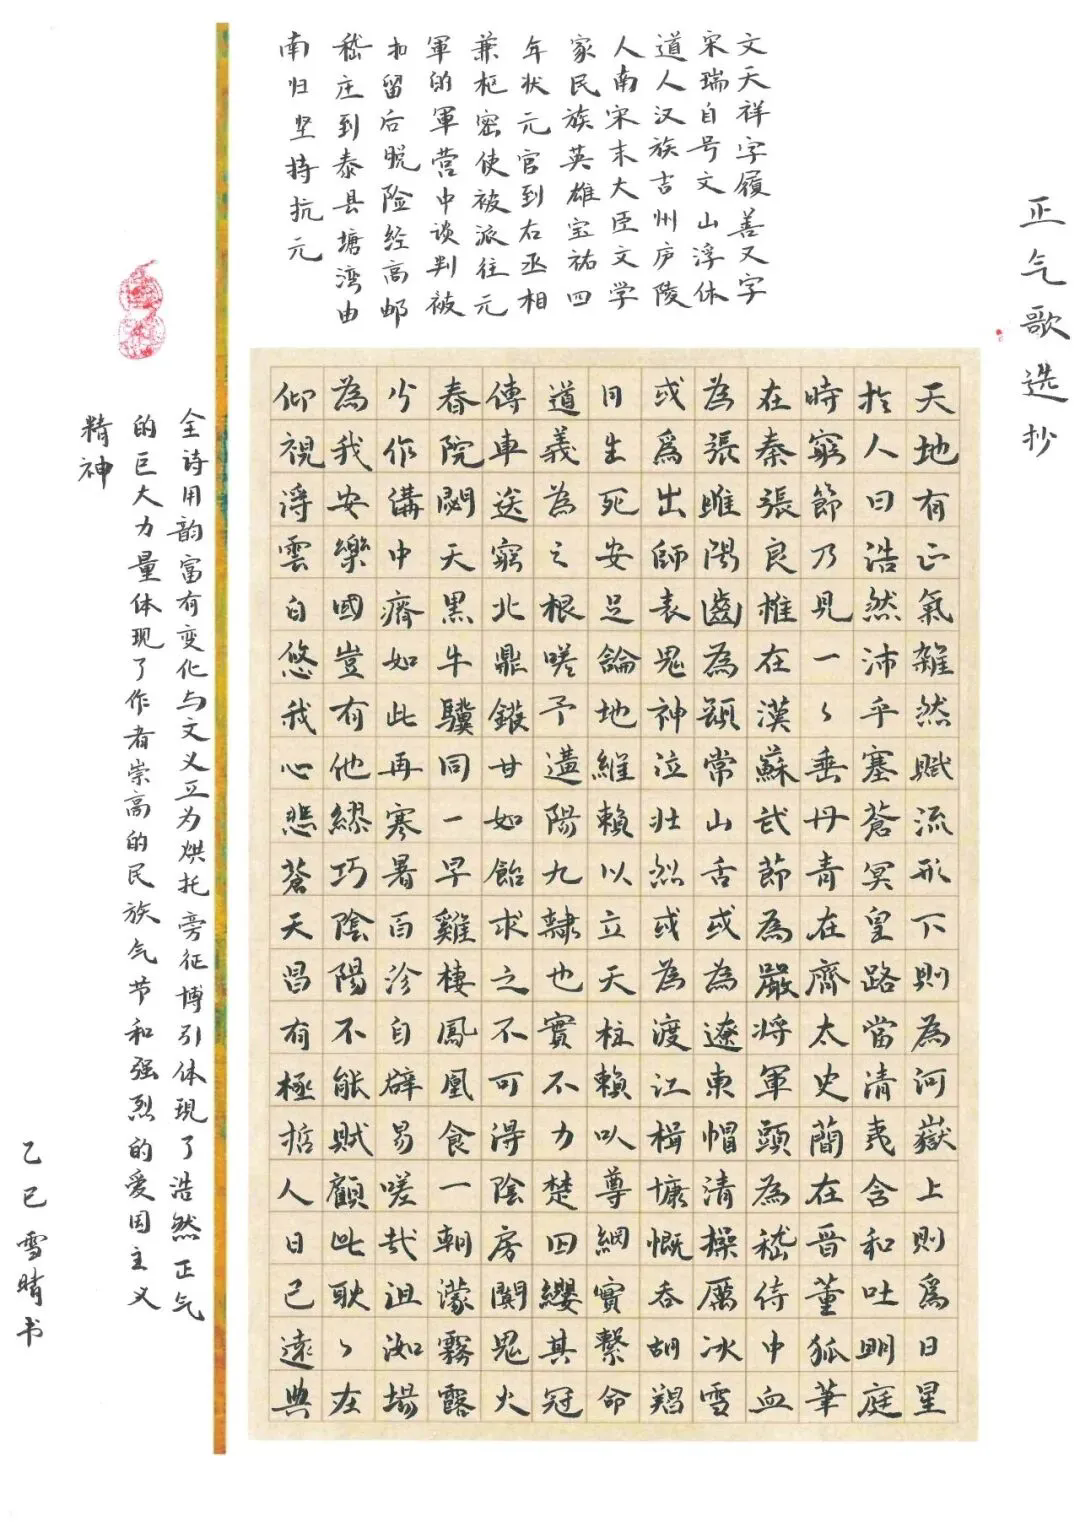 正气歌选抄
文天祥字履善又字
宋瑞自号文山浮休
道人汉族吉州庐陵
人南宋末大臣文学
家民族英雄宝祐四
年状元官到右丞相
兼枢密使被派往元
軍的軍营中谈判被
扣留后脱险经高邮
嵇庄到泰县塘湾由
南归坚持抗元
天地有正氣雜然賦流形下則為河嶽上則爲日星
扵人曰浩然沛乎塞蒼冥皇路當清夷含和吐明庭
時窮節乃見一〻垂丹青在齊太史簡在晋董狐筆
在秦張良椎在漢蘇武節為嚴将軍頭為嵇侍中血
為張睢陽齒為顔常山舌或為遼東帽清操厲冰雪
或爲出師表鬼神泣壮烈或為渡江楫慷慨吞胡羯
日生死安足論地維賴以立天柱賴以尊綱實繫命
道義為之根嗟予遘陽九隷也實不力楚囚纓其冠
傳車送窮北鼎鑊甘如飴求之不可得陰房闃鬼火
春院閟天黑牛驥同一早雞棲鳳凰食一朝濛霧露
分作溝中瘠如此再寒暑百沴自辟易嗟哉沮洳場
為我安樂國豈有他繆巧陰陽不能賊顧此耿〻在
仰視浮雲白悠我心悲蒼天曷有極哲人日已遠典
全诗用韵富有变化与文义互为烘托旁征博引体現了浩然正气
的巨大力量体现了作者崇高的民族气节和强烈的爱国主义
精神
乙巳雪晴书